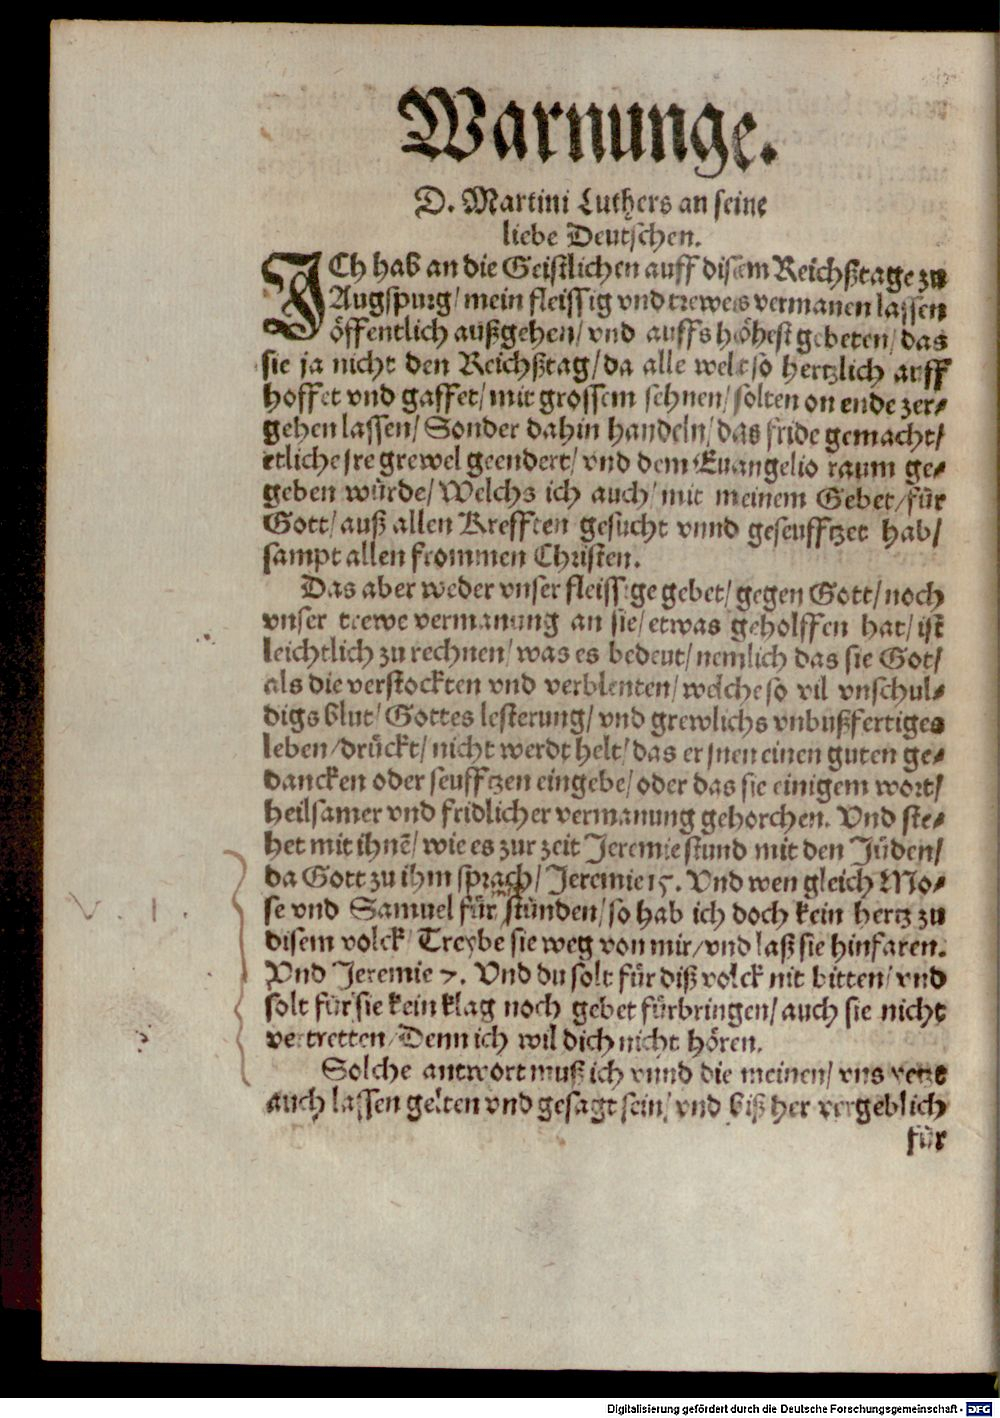 Warnunge.
D. Martini Luthers an seine
liebe Deutschen.
ICh hab an die Geistlichen auff disem Reichßtage zu
Augspurg/ mein fleissig vnd trewes vermanen lassen
öffentlich außgehen/ vnd auffs höhest gebeten/ das
sie ja nicht den Reichßtag/ da alle welt so hertzlich auff
hoffet vnd gaffet/ mit grossem sehnen/ solten on ende zer-
gehen lassen/ Sonder dahin handeln/ das fride gemacht/
etliche jre grewel geendert/ vnd dem Euangelio raum ge-
geben würde/ Welchs ich auch/ mit meinem Gebet/ für
Gott/ auß allen Krefften gesucht vnnd geseufftzet hab/
sampt allen frommen Christen.
Das aber weder vnser fleissige gebet/ gegen Gott/ noch
vnser trewe vermanung an sie/ etwas geholffen hat/ ist
leichtlich zu rechnen/ was es bedeut/ nemlich das sie Got/
als die verstockten vnd verblenten/ welche so vil vnschul-
digs blut/ Gottes lesterung/ vnd grewlichs vnbußfertiges
leben/ drückt/ nicht werdt helt/ das er jnen einen guten ge-
dancken oder seufftzen eingebe/ oder das sie einigem wort/
heilsamer vnd fridlicher vermanung gehorchen. Vnd ste-
het mit ihnē/ wie es zur zeit Jeremie stund mit den Jüden/
da Gott zu ihm sprach/ Jeremie 15. Vnd wen gleich Mo-
se vnd Samuel für stünden/ so hab ich doch kein hertz zu
disem volck/ Treybe sie weg von mir/ vnd laß sie hinfaren.
Vnd Jeremie 7. Vnd du solt für diß volck nit bitten/ vnd
solt für sie kein klag noch gebet fürbringen/ auch sie nicht
vertretten/ Denn ich wil dich nicht hören.
Solche antwort muß ich vnnd die meinen/ vns yetzt
auch lassen gelten vnd gesagt sein/ vnd biß her vergeblich
für
V. 1.
Digitalisierung gefördert durch die Deutsche Forschungsgemeinschaft - DFG